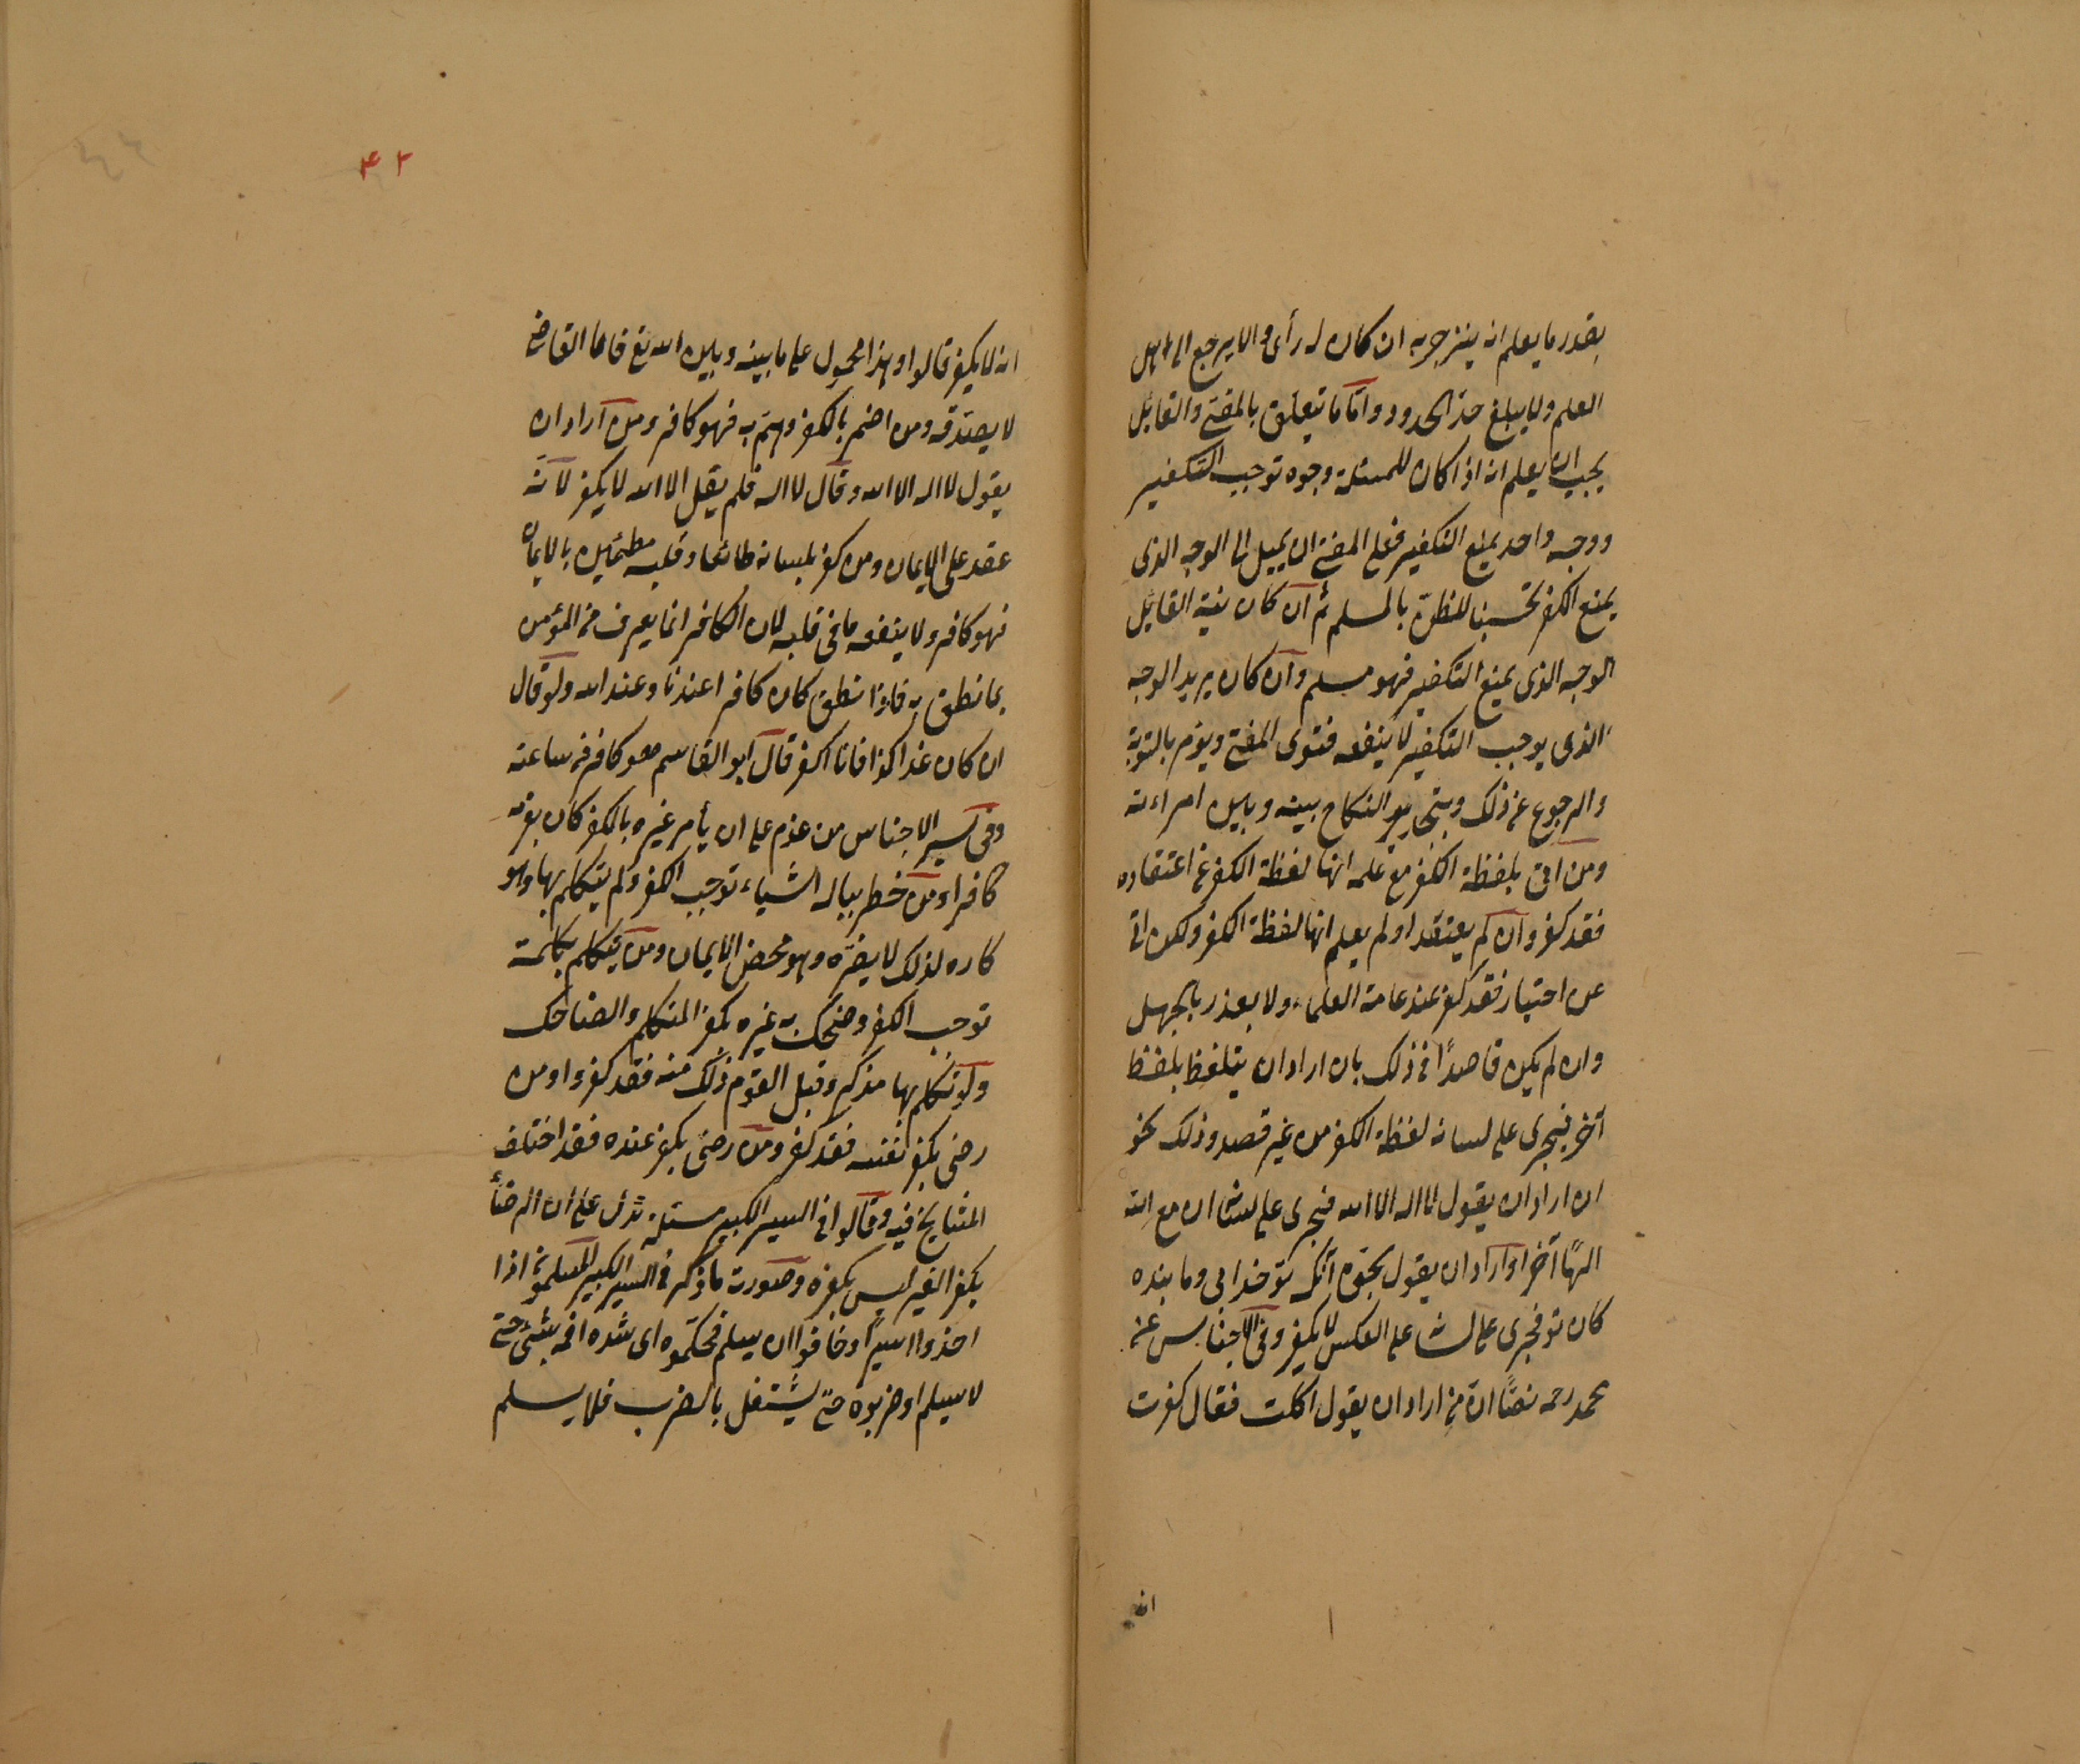 بقدر ما يعلم انه ينزجر به ان كان له رأى والا يرجع الى اهل
العلم ولا يبلغ حد الحدود واما ما يتعلق بالمفتى والقائل
يجب ان يعلم انه اذا كان للمسئلة وجوه توجب التكفير
ووجه واحد يمنع التكفير فعلى المفتى ان يميل الى الوجه الذى
يمنع الكفر تحسينا للظن بالمسلم ثم ان كان نية القائل
الوجه الذى يمنع التكفير فهو مسلم وان كان يريد الوجه
الذى يوجب التكفير لا ينفعه فتوى المفتى ويؤمر بالتوبة
والرجوع عن ذلك وبتجديد النكاح بينه وبين امراءته
ومن اتى بلفظة الكفر مع علمه انها لفظة الكفر عن اعتقاده
فقد كفر وان لم يعتقد او لم يعلم انها لفظة الكفر ولكن اتى
عن اختيار فقد كفر عند عامة العلماء ولا يعذر بالجهل
وان لم يكن قاصدًا فى ذلك بان اراد ان يتلفظ بلفظ
آخر فيجرى على لسانه لفظة الكفر من غير قصد وذلك نحو
ان اراد ان يقول لا اله الا الله فيجرى على لسانه ان مع الله
الهًا آخر او اراد ان يقول بحق آنكه تو خدايى وما بنده
كان تو فجرى على لسانه على العكس لا يكفر وفى الاجناس عن
محمد رحمه نصًا ان من اراد ان يقول اكلت فقال كفرت
انه
٤٢
انه لا يكفر قالوا وهذا محمول على ما بينه وبين الله تع فاما القاضى
لا يصدقه ومن اضمر بالكفر وهم به فهو كافر ومن اراد ان
يقول لا اله الا الله وقال لا اله فلم يقل الا الله لا يكفر لانه
عقد على الايمان ومن كفر بلسانه طائعا وقلبه مطمئن بالايمان
فهو كافر ولا ينفعه ما فى قلبه لان الكافر انما يعرف من المؤمن
بما نطق به فاذا نطق كان كافرا عندنا وعند الله ولو قال
ان كان غدا كذا فانا اكفر قال ابو القاسم هو كافر من ساعته
وفى سير الاجناس من عزم على ان يأمر غيره بالكفر كان بعزمه
كافرا ومن خطر بباله اشياء توجب الكفر ولم يتكلم بها وهو
كاره لذلك لا يضره وهو محض الايمان ومن يتكلم بكلمة
توجب الكفر وضحك به غيره يكفر المتكلم والضاحك
ولو تكلم بها مذكر وقبل القوم ذلك منه فقد كفروا ومن
رضى بكفر نفسه فقد كفر ومن رضى بكفر عنده فقد اختلف
المشايخ فيه وقالوا فى السير الكبير مسئلة تدل على ان الرضأ
بكفر الغير ليس بكفره وصورت ما ذكر فى السير الكبير المسلمون اذا
اخذوا اسيرًا وخافوا ان يسلم فحكموه اى شده فمه بشئ حتى
لا يسلم او ضربوه حتى يشتغل بالضرب فلا يسلم